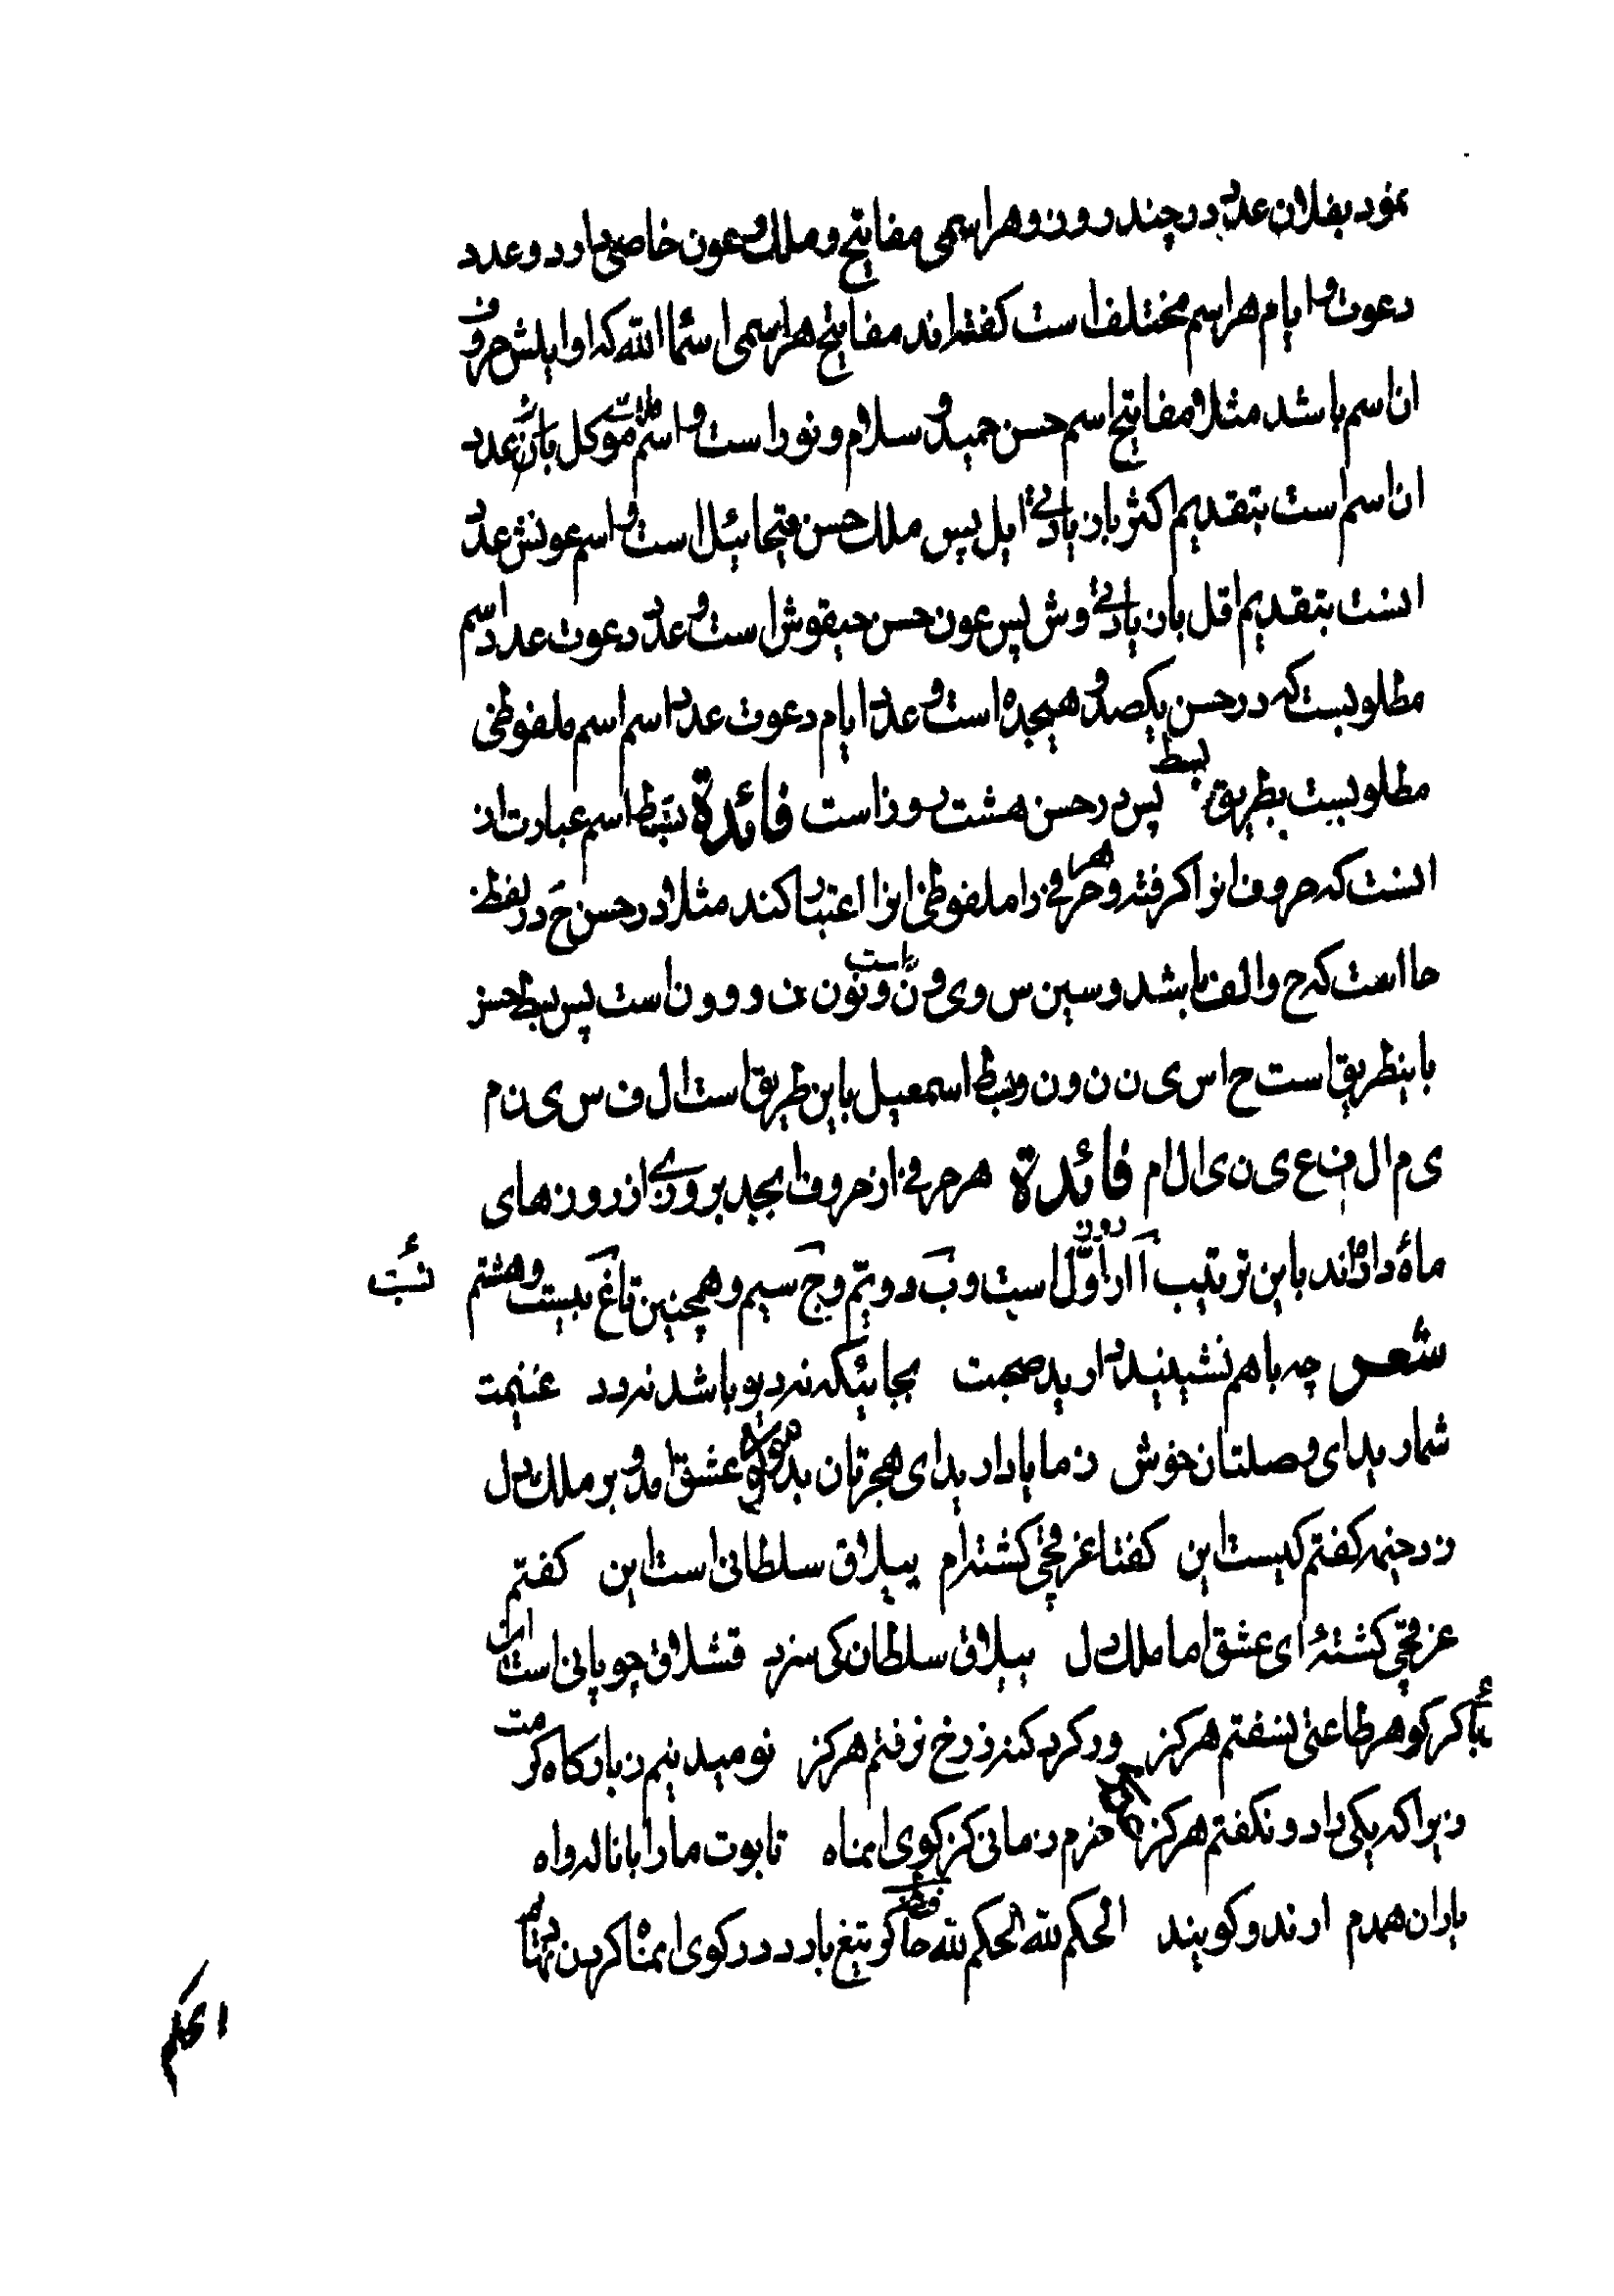 نمود بفلان عدد در چند روز و هر اسمی مفاتیح و ملک و عون خاصی دارد و عدد
دعوت و ایام هر اسم مختلف است گفته‌اند مفاتیح هر اسمی اسماء الله که اوایلش حروف
ان اسم باشد مثلا مفاتیح اسم حسن حمید و سلام و نور است و اسم ملک موکل بان عدد
ان اسم است بتقدیم اکثر بازیادتی ایل پس ملک حسن قیحائیل است و اسم عونش عدد
انست بتقدیم اقل بازیادتی وش پس عون حسن حیقوش است و عدد دعوت عدد اسم
مطلوبست که در حسن یکصد و هیجده است و عدد ایام دعوت عدد اسم اسم ملفوظی
مطلوبست بطریق بسط پس در حسن هشت روز است فائدة بسط اسم عبارت از
انست که حروف انرا گرفته و هر حرفی را ملفوظی انرا اعتبار کند مثلا در حسن ح در لفظ
حا است که ح و الف باشد و سین س و ی و ن است و نون ن و و و ن است پس بسط حسن
باینطریق است ح ا س ی ن ن و ن و بسط اسمعیل باین طریق است ا ل ف س ی ن م
ی م ا ل ف ع ی ن ی ا ل ا م فائدة هر حرفی از حروف ابجد بروزی از روزهای
ماه داده‌اند باین ترتیب آ از روز اول است و ب دویم و ج سیم و همچنین تا غ بیست و هشتم
شعر چه باهم نشینید دارید صحبت بجائیکه نرد یو باشد نه دد غنیمت
شمارید ای وصلتان خوش ز ما یاد ارید ای هجرتان بد عشق امد و بر ملک دل
زد خیمه گفتم کیست این گفتا غرقچی گشته‌ام ییلاق سلطانی است این گفتم
غرقچی گشتهٔ ای عشق اما ملک دل ییلاق سلطان کی سزد قشلاق چوپانی است این
گر گوهر طاعتی نسفتم هرگز ور گرد گنه ز رخ نرفتم هرگز نومید نیم ز بارگاه کرمت
زیرا که یکی را دو نگفتم هرگز خرم زمانی کز کوی انماه تابوت ما را با ناله و اه
یاران همدم ارند و گویند الحکم لله الحکم لله گر تیغ بارد در کوی انماه گردن نهادیم
الحکم